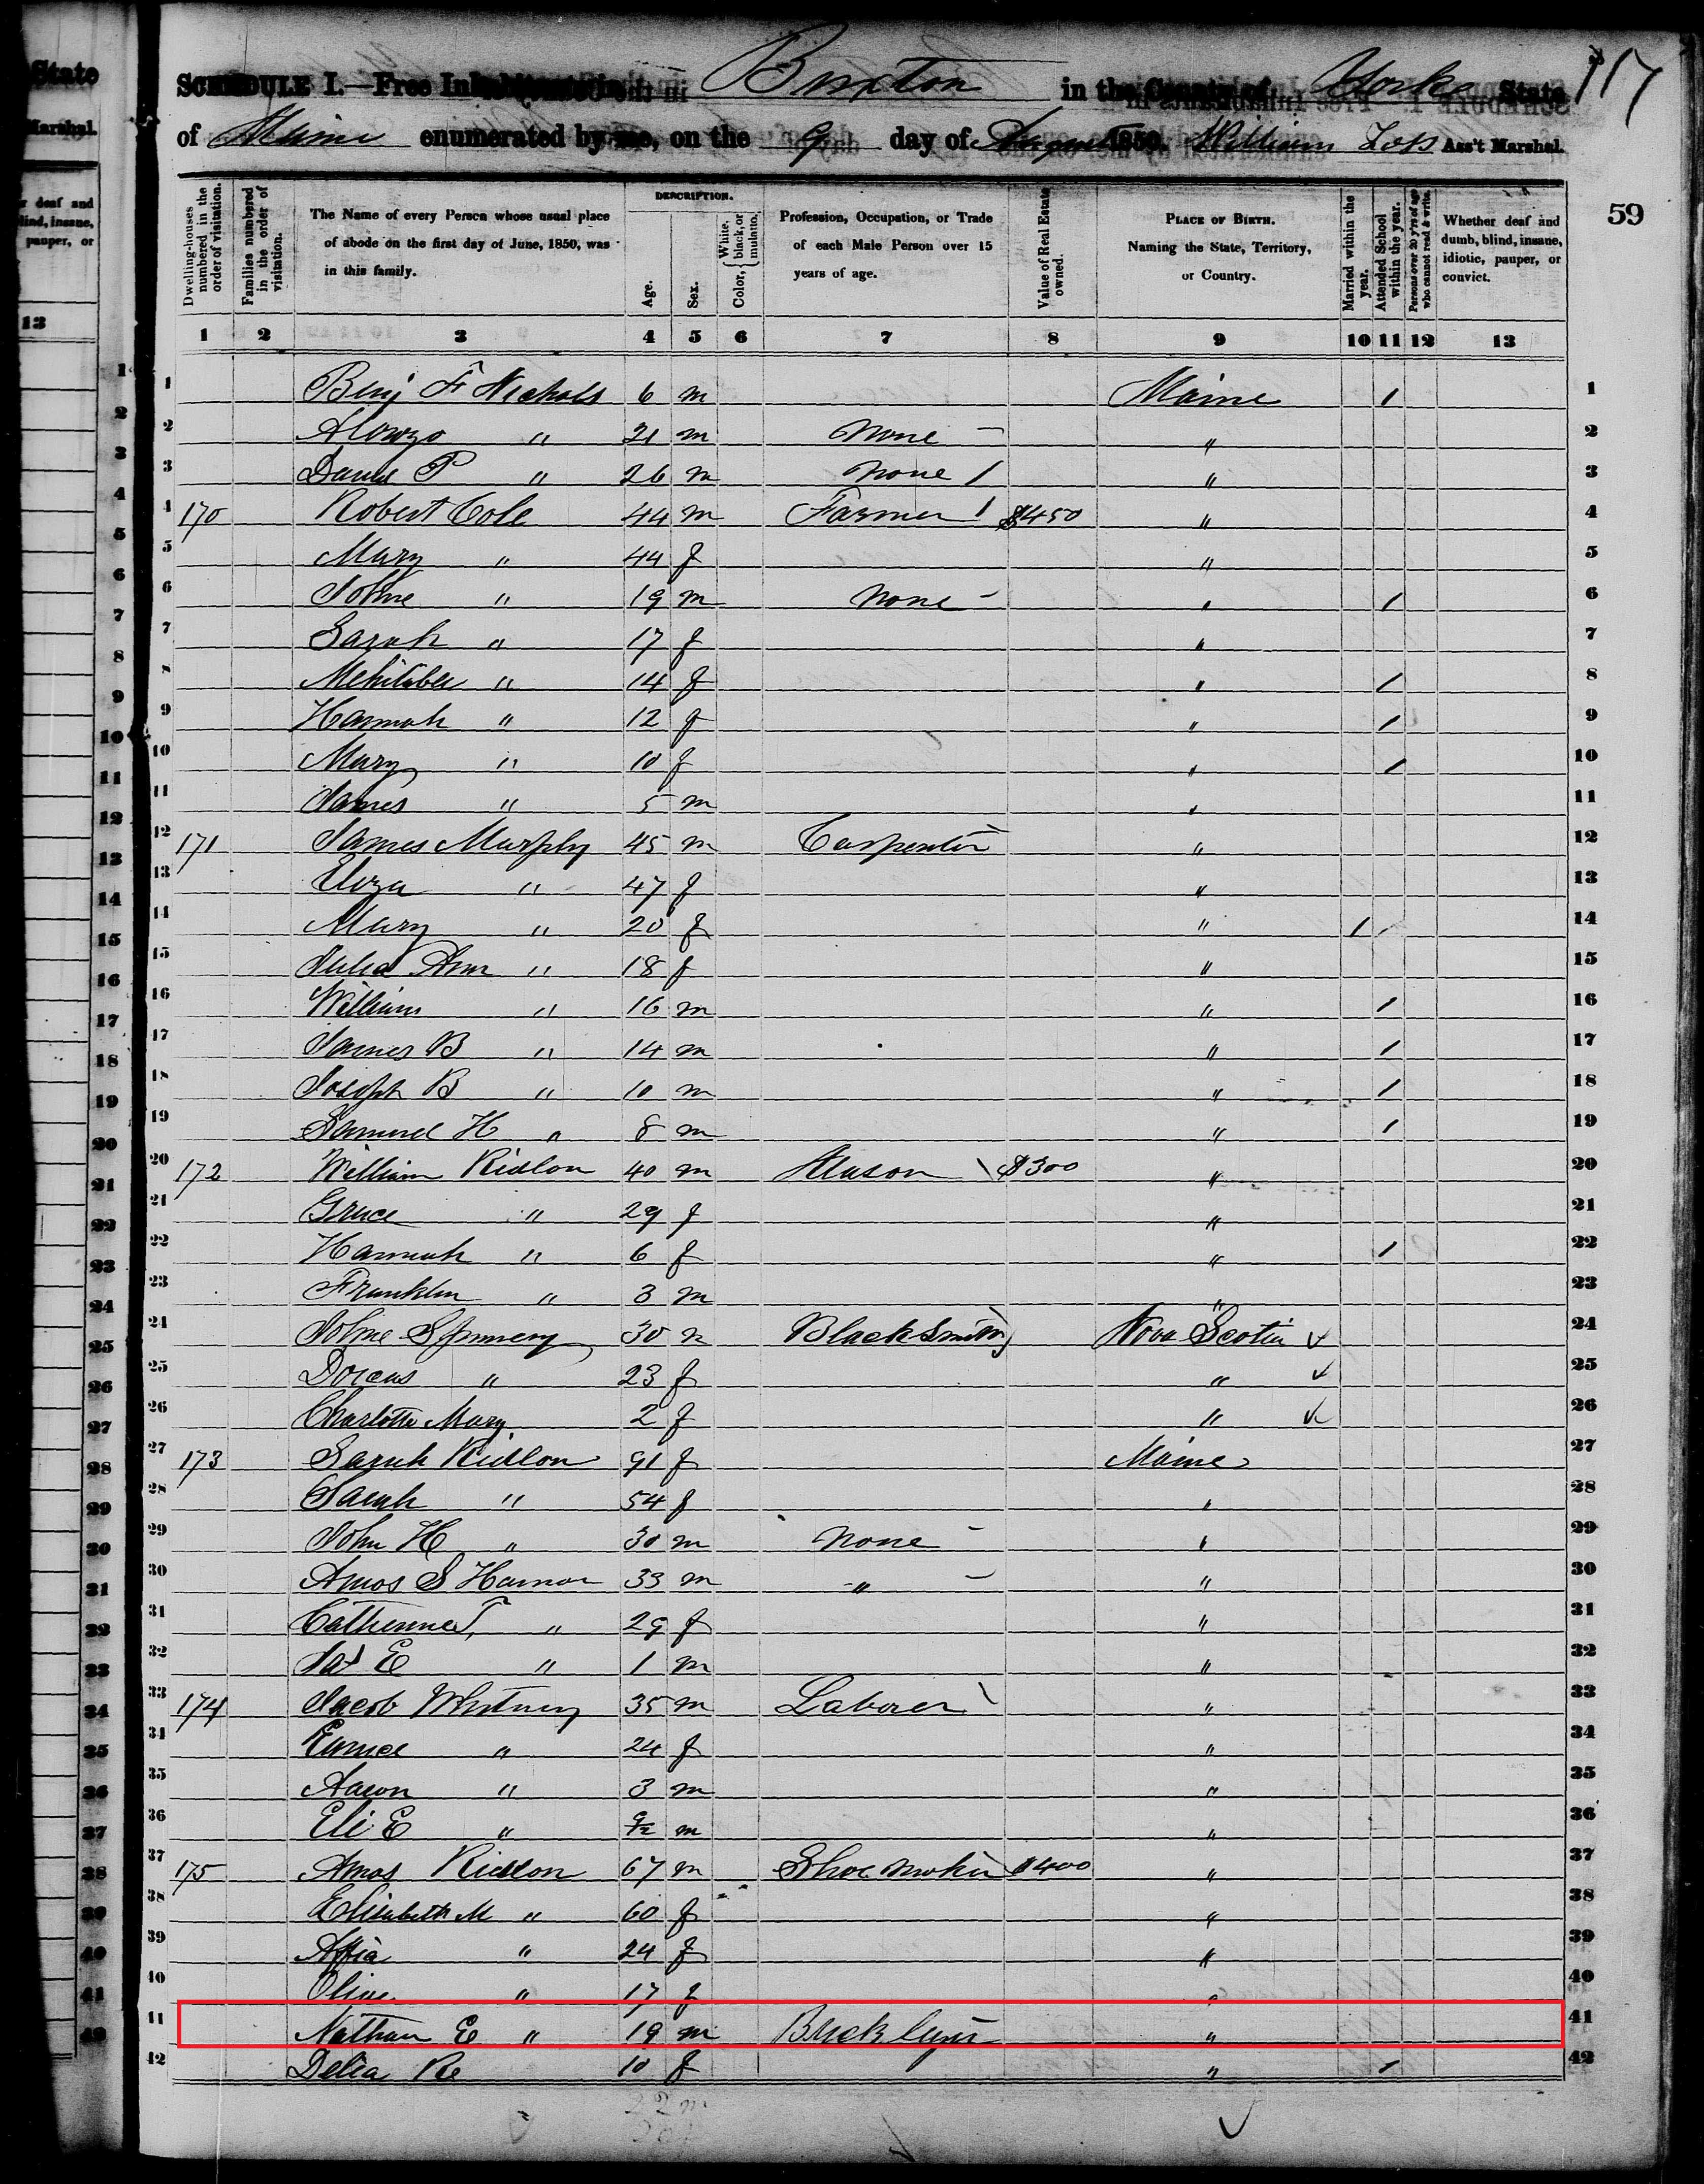 117
SCHEDULE I.—Free Inhabitants in Buxton in the County of York State
of Maine enumerated by me, on the 9 day of August 1850. William Ass't Marshal.
59
Dwelling-houses numbered in the order of visitation.
Families numbered in the order of visitation.
The Name of every Person whose usual place of abode on the first day of June, 1850, was in this family.
DESCRIPTION.
Age.
Sex.
Color, { White, black, or mulatto.
Profession, Occupation, or Trade of each Male Person over 15 years of age.
Value of Real Estate owned.
PLACE OF BIRTH. Naming the State, Territory, or Country.
Married within the year.
Attended School within the year.
Persons over 20 y'rs of age who cannot read & write.
Whether deaf and dumb, blind, insane, idiotic, pauper, or convict.
1 2 3 4 5 6 7 8 9 10 11 12 13
1 Benj F Nichols 6 m Maine 1 1
2 Alonzo " 21 m None " 2
3 Daniel P " 26 m None " 3
4 170 Robert Cole 44 m Farmer $450 " 4
5 Mary " 44 f " 5
6 John " 19 m None " 1 6
7 Sarah " 17 f " 7
8 Mehitible " 14 f " 1 8
9 Hannah " 12 f " 1 9
10 Mary " 10 f " 1 10
11 James " 5 m " 11
12 171 James Murphy 45 m Carpenter " 12
13 Eliza " 47 f " 13
14 Mary " 20 f " 1 14
15 Julia Ann " 18 f " 15
16 William " 16 m " 1 16
17 James B " 14 m " 1 17
18 Joseph B " 10 m " 1 18
19 Samuel H " 8 m " 1 19
20 172 William Ridlon 40 m Mason $300 " 20
21 Grace " 29 f " 21
22 Hannah " 6 f " 1 22
23 Franklin " 3 m " 23
24 John Spinney 30 m BlackSmith Nova Scotia 24
25 Dorcus " 23 f " 25
26 Charlotte Mary 2 f " 26
27 173 Sarah Ridlon 91 f Maine 27
28 Sarah " 54 f " 28
29 John H " 30 m None " 29
30 Amos S 33 m " " 30
31 Catherine T. " 29 f " 31
32 E " 1 m " 32
33 174 Jacob Whitney 35 m Laborer " 33
34 Eunice " 24 f " 34
35 Aaron " 3 m " 35
36 Eli E " m " 36
37 175 Amos Ridlon 67 m Shoe maker $400 " 37
38 Elisabeth M " 60 f " 38
39 Affia " 24 f " 39
40 Olive " 17 f " 40
41 Nathan E " 19 m Brick layer " 41
42 Delia Re 10 f " 1 42